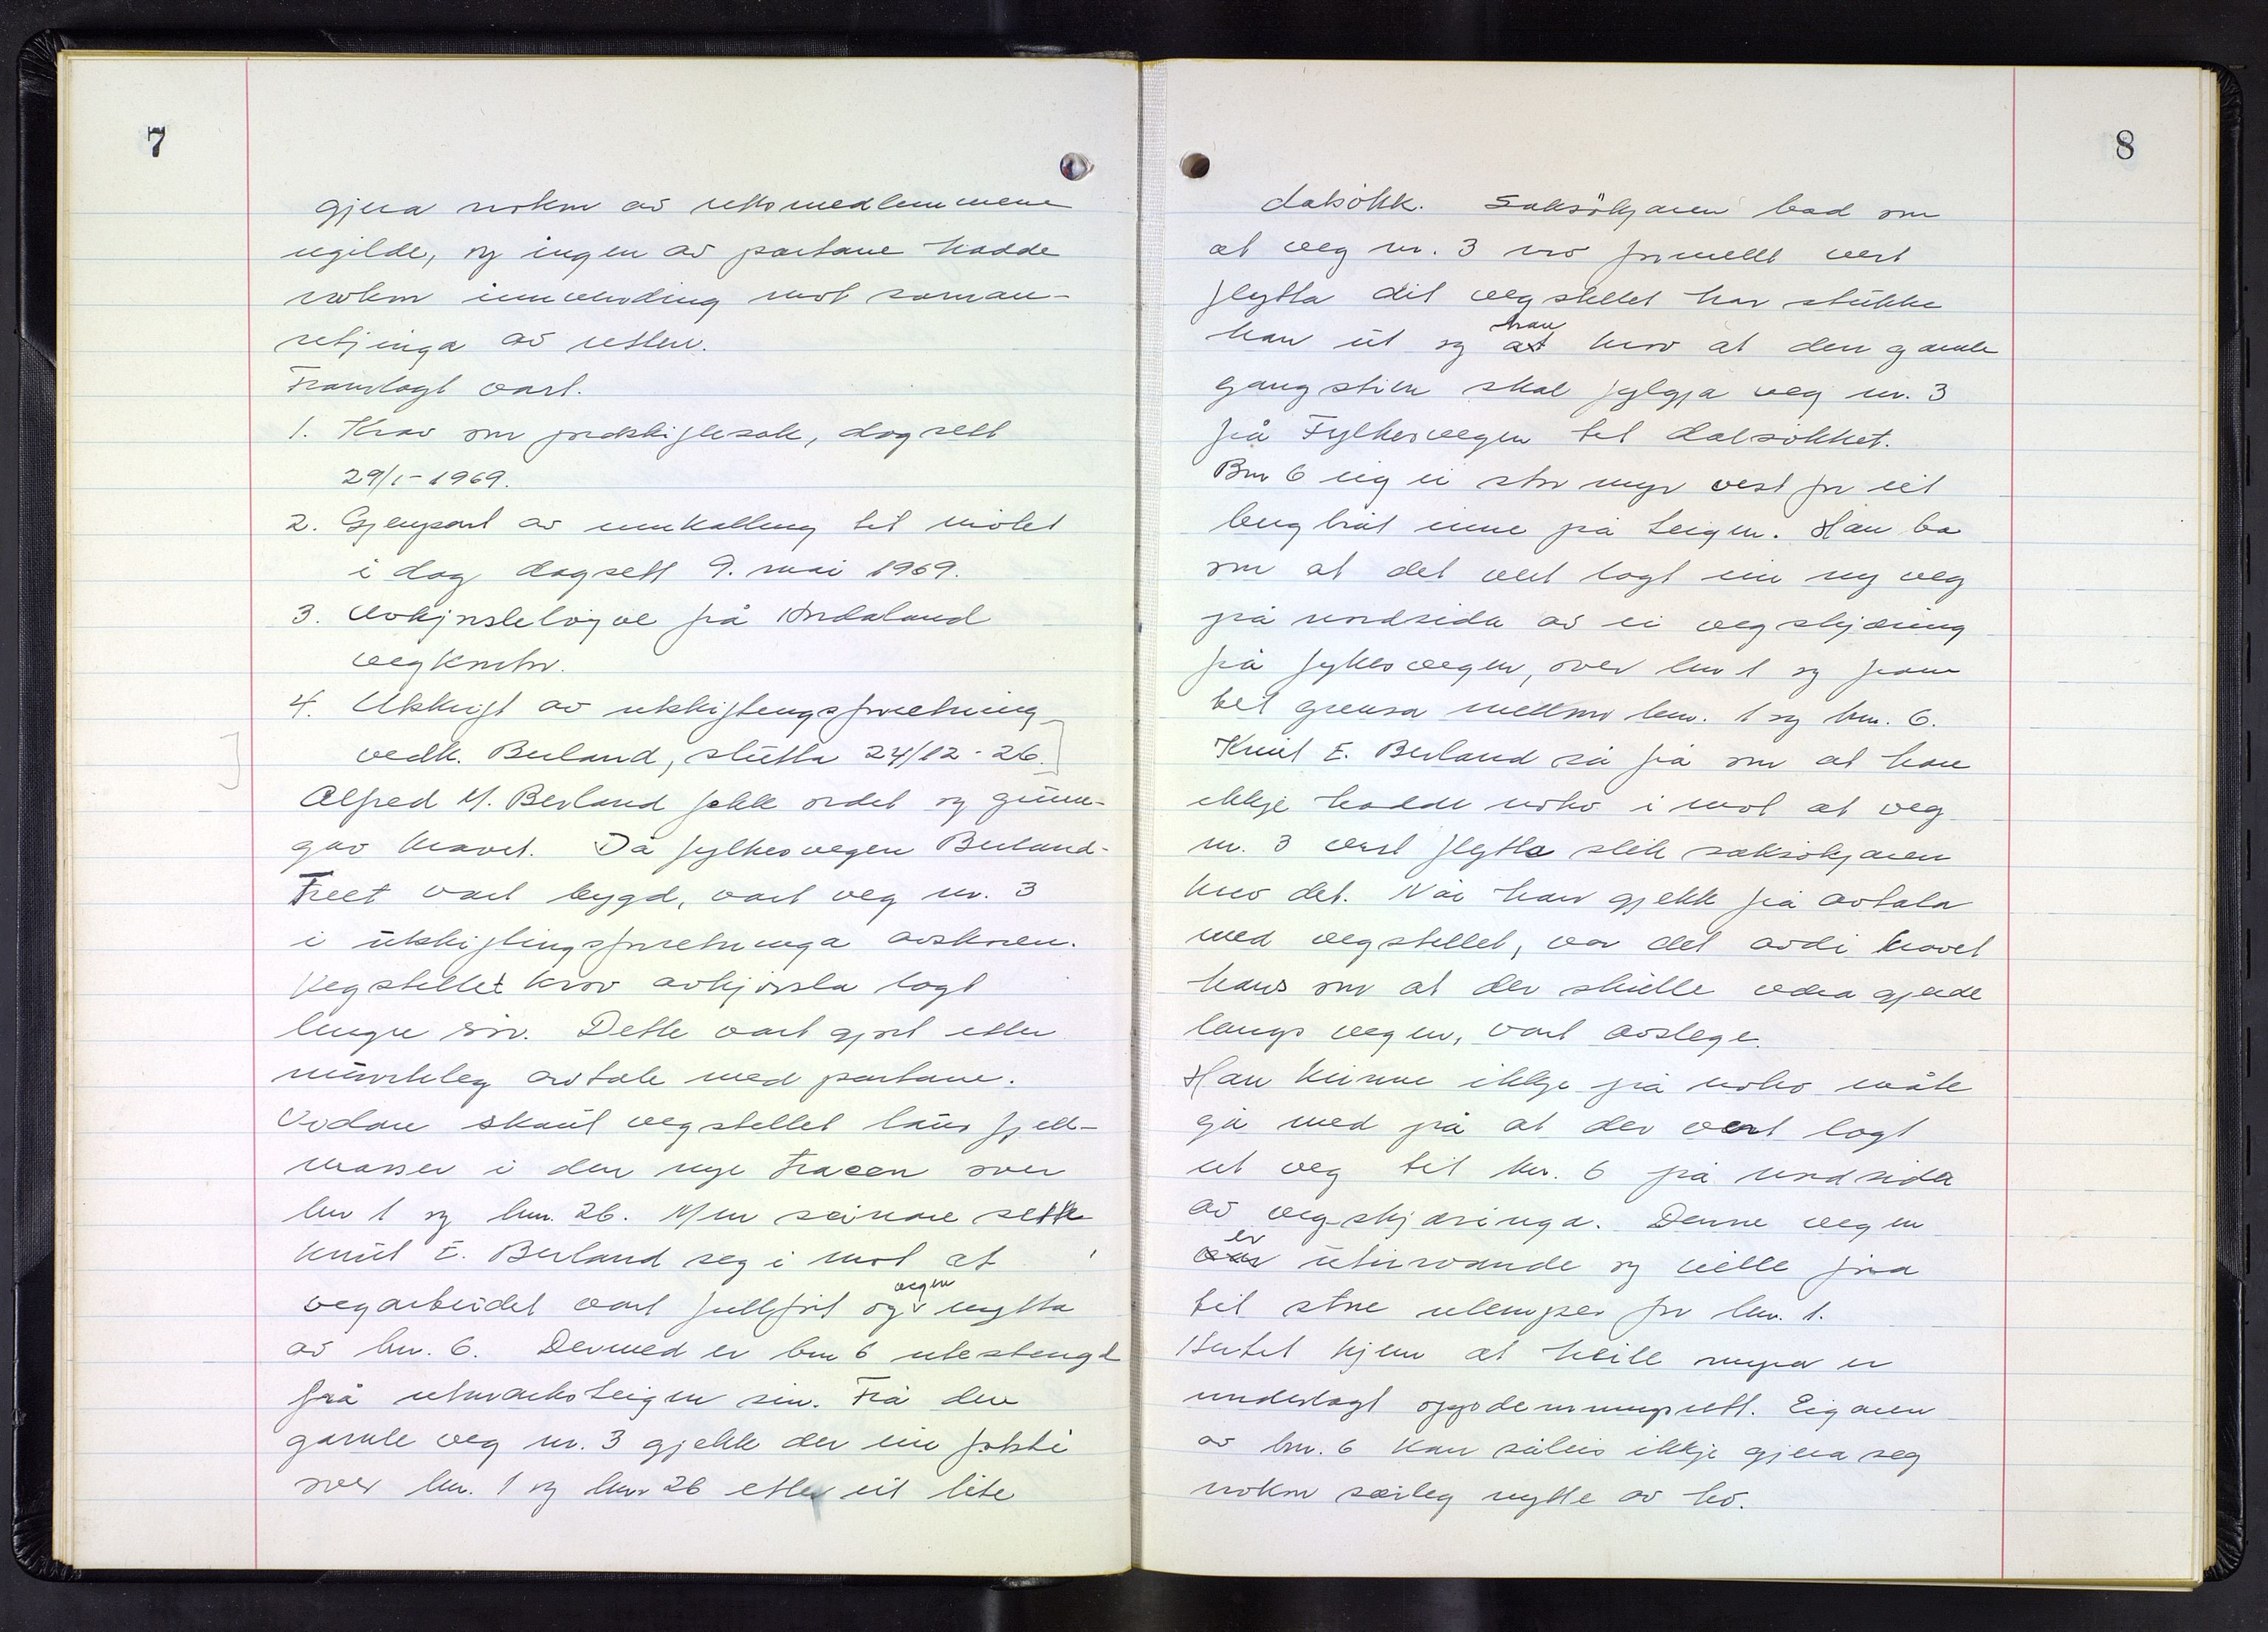 7
gjera nokon av rettsmedlemmene
ugilde, og ingen av partane hadde
nokon innvending mot saman-
setjinga av retten.
Framlagt vart.
1. Krav om jordskiftesak, dagsett
29/1-1969.
2. Gjenpart av innkalling til møtet
i dag dagsett 9. mai 1969.
3. Avkjørsleløyve frå Hordaland
vegkontor.
4. Utskrift av utskiftingsforretning
vedk. Berland, slutta 24/12-26.
Alfred M. Berland fekk ordet og grunn-
gav kravet. Då fylkesvegen Berland-
Treet vart bygd, vart veg nr. 3
i utskiftingsforretninga avskoren.
Vegstellet krov avkjørsla lagt
lengre sør. Dette vart gjort etter
munnleg avtale med partane.
Vidare skaut vegstellet laus fjell-
masser i den nye traceen over
bnr 1 og bnr. 26. Men seinare sette
Knut E. Berland seg i mot at
vegarbeidet vart fullført og vegen nytta
av bnr. 6. Dermed er bnr 6 utestengd
frå utmarksteigen sin. Frå den
gamle veg nr. 3 gjekk der ein foti
over bnr. 1 og bnr 26 etter eit lite
8
dalsökk. Saksökjaren bad om
at veg nr. 3 no formellt vert
flytta dit vegstellet har stukke
han ut og at han krov at den gamle
gangstien skal fylgja veg nr. 3
frå Fylkesvegen til dalsökket.
Bnr 6 eig ei stor myr vest for eit
berg inne på teigen. Han ba
om at det vert lagt ein ny veg
på nordsida av ei vegskjæring
frå fylkesvegen, over bnr 1 og fram
til grensa mellom bnr. 1 og bnr. 6.
Knut E. Berland sa frå om at han
ikkje hadde noko i mot at veg
nr. 3 vart flytta slik saksökjaren
krov det. Når han gjekk frå avtala
med vegstellet, var det avdi kravet
hans om at der skulle vera gjerde
langs vegen, vart avslege.
Han kunne ikkje på noko måte
gå med på at der vart lagt
ut veg til bnr. 6 på nordsida
av vegskjæringa. Denne vegen
var er uturvande og ville föra
til store ulemper for bnr. 1.
Hertil kjem at heile myra er
underlagt oppdemmingsrett. Eigaren
av bnr. 6 kan såleis ikkje gjera seg
nokon særleg nytte av ho.